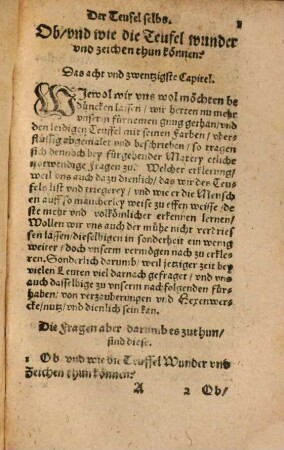 Der Teufel selbs. 1
Ob/vnd wie die Teufel wunder
vnd zeichen thun können?
Das acht vnd zwentzigste Capitel.
WIewol wir vns wol möchten be
duncken lassen/ wir hetten nu mehr
vnserm fürnemen gnug gethan/vnd
den leidigen Teuffel mit seinen Farben/ vber
flüssig abgemalet vnd beschrieben/ so tragen
sich dennoch bey fürgehender Matery etliche
notwendige Fragen zu. Welcher erklerung/
weil vns auch dazu dienlich/das wir der Teu
fels list vnd triegerey/ vnd wie er die Mensch
en auff so mancherley weise zu effen weisse/ de
ste mehr vnd volkömlicher erkennen lernen/
Wollen wir vns auch der mühe nicht verdries
sen lassen/dieselbigen in sonderheit ein wenig
weiter/ doch vnserm vermögen nach zu erkle
ren. Sonderlich darumb/ weil jetziger zeit bey
vielen Leuten viel darnach gefraget / vnd vns
auch dasselbige zu vnserm nachfolgenden für
haben/ von verzauberungen vnd Hexenwers
cke/nutz/ vnd dienlich sein kan.
Die Fragen aber darumb es zuthun/
sind diese.
1 Ob vnd wie die Teuffel Wunder vnd
Zeichen thun können?
A 2 Ob/